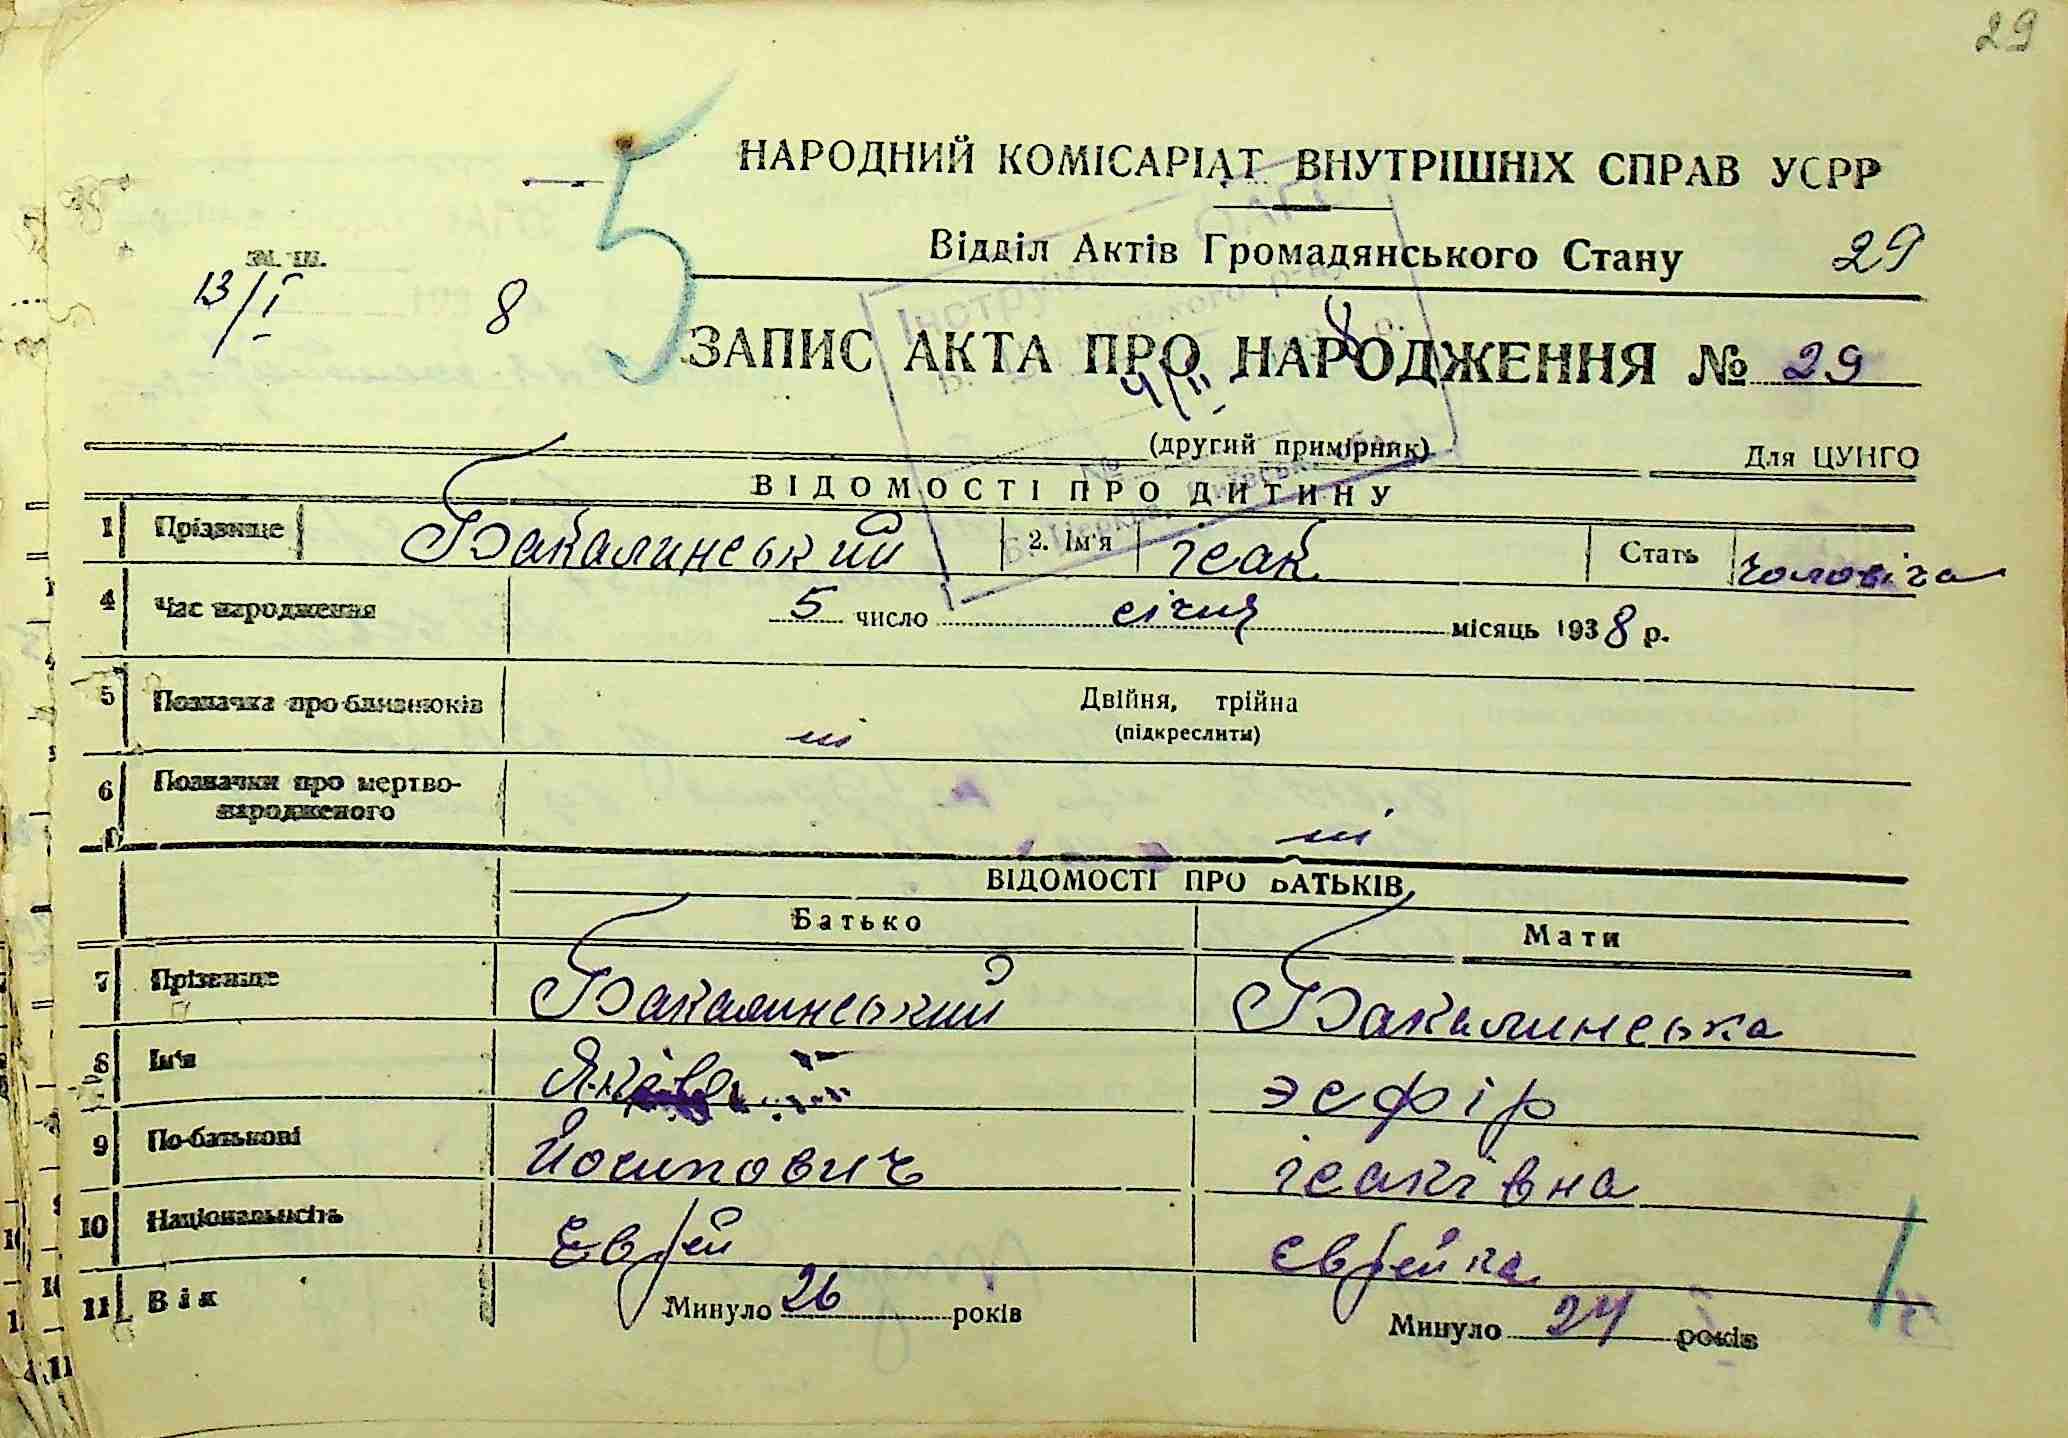 29
НАРОДНИЙ КОМІСАРІАТ ВНУТРІШНІХ СПРАВ УСРР
5
Відділ Актів Громадянського Стану 29
13/I 8
ЗАПИС АКТА ПРО НАРОДЖЕННЯ № 29
8
4/II
(другий примірник) Для ЦУНГО
ВІДОМОСТІ ПРО ДИТИНУ
1 Прізвище Бакалинський 2. Ім'я Ісак Стать чоловіча
4 Час народження 5 число січня місяць 1938 р.
5 Позначка про близнюків ні Двійня, трійна
(підкреслити)
6 Позначки про мертво-
народженого ні
ВІДОМОСТІ ПРО БАТЬКІВ
Батько Мати
7 Прізвище Бакалинський Бакалинська
8 Ім'я Яків Эсфір
9 По-батькові Йосипович Ісаківна
10 Національність Еврей Єврейка
11 Вік Минуло 26 років Минуло 24 років